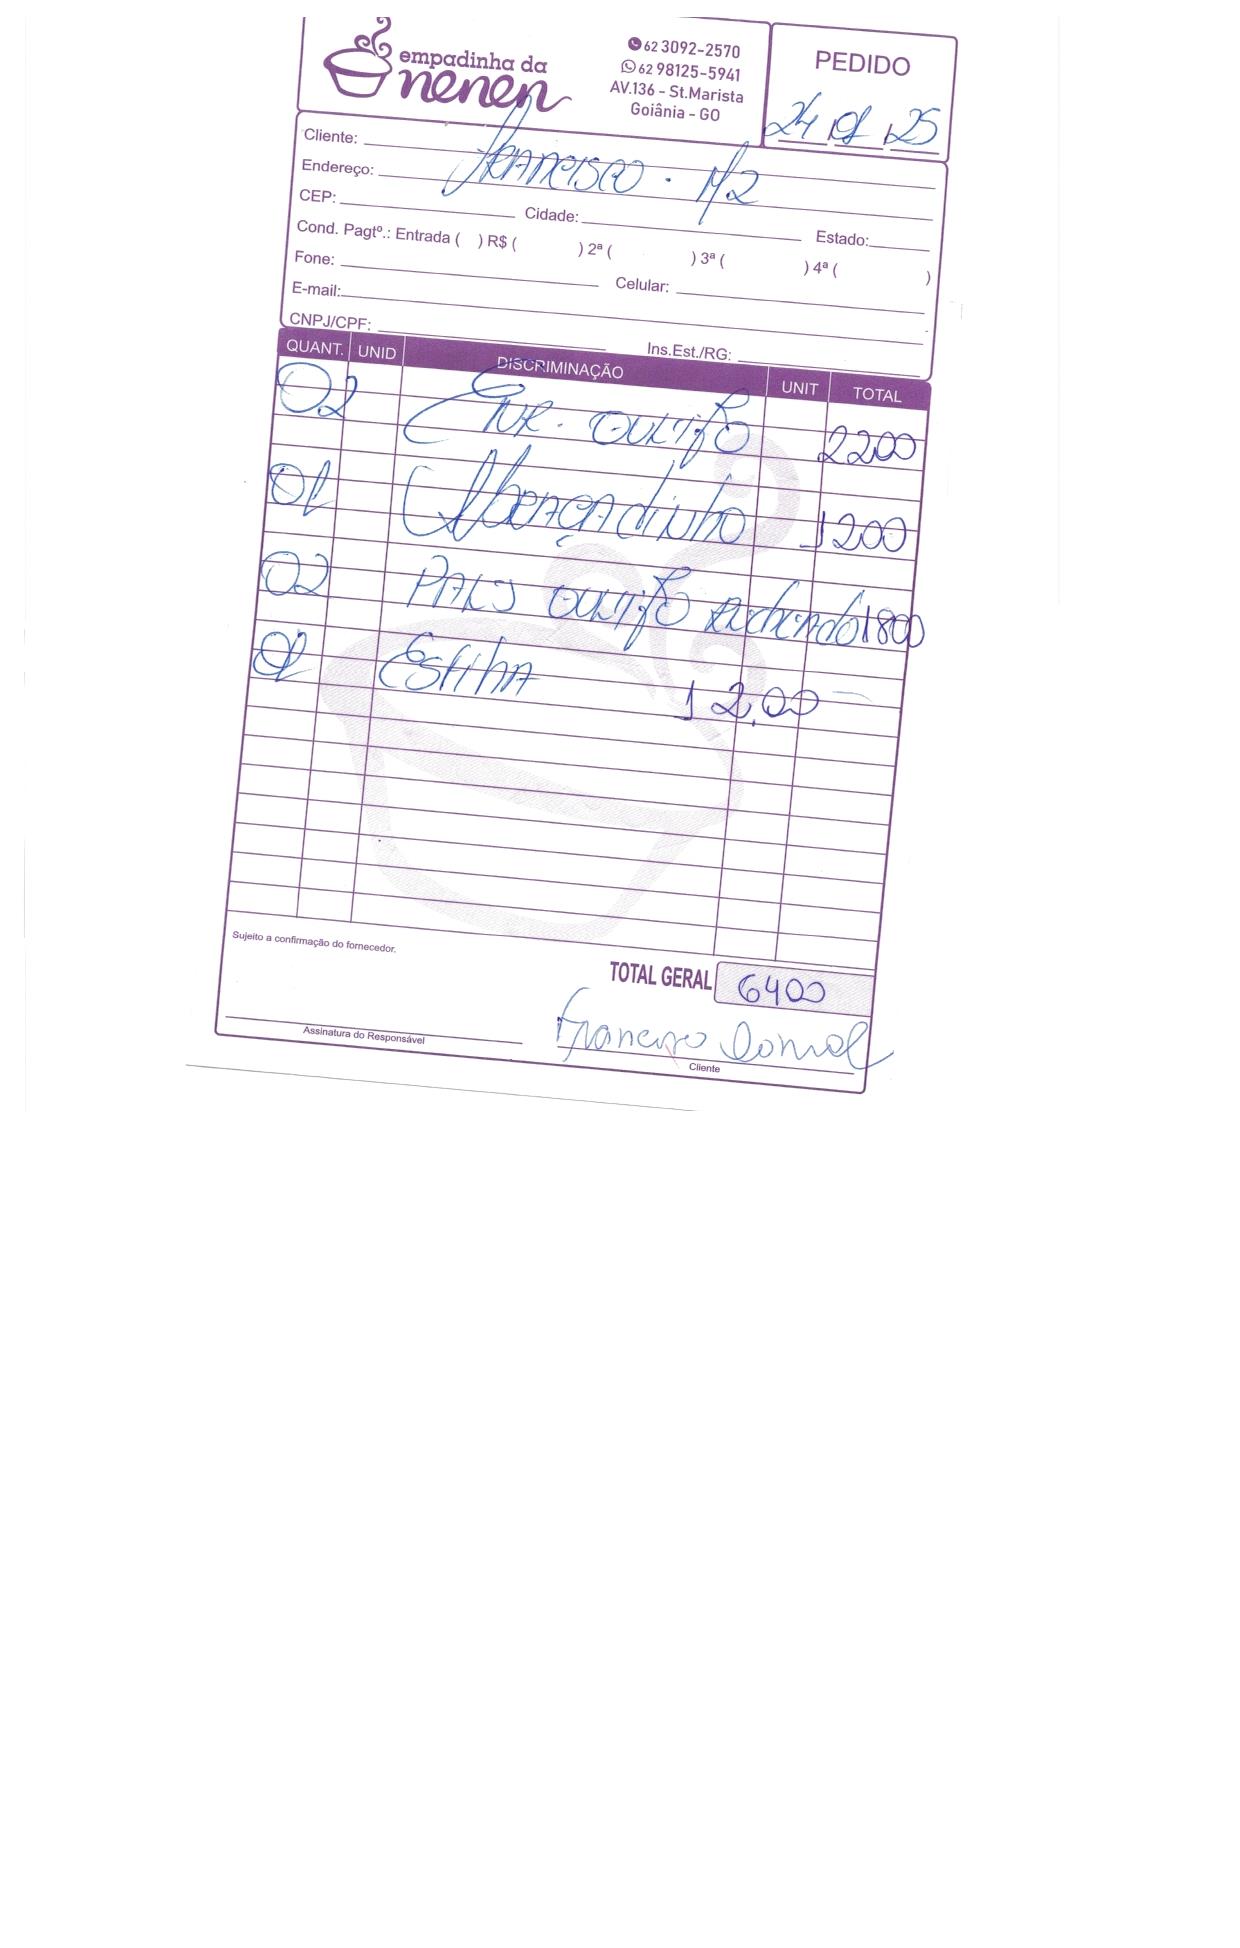 empadinha da
nenen
62 3092-2570
62 98125-5941
AV.136 - St.Marista
Goiânia - GO
PEDIDO
24 25
Cliente:
FRANCISCO.
Endereço:
CEP: Cidade: Estado:
Cond. Pagtº.: Entrada ( ) R$ ( ) 2ª ( ) 3ª ( ) 4ª ( )
Fone: Celular:
E-mail:
CNPJ/CPF: Ins.Est./RG:
QUANT. UNID DISCRIMINAÇÃO UNIT TOTAL
02 2200
01 1200
02 1800
Esfiha 12,00
Sujeito a confirmação do fornecedor.
TOTAL GERAL 6400
Francisco
Assinatura do Responsável Cliente